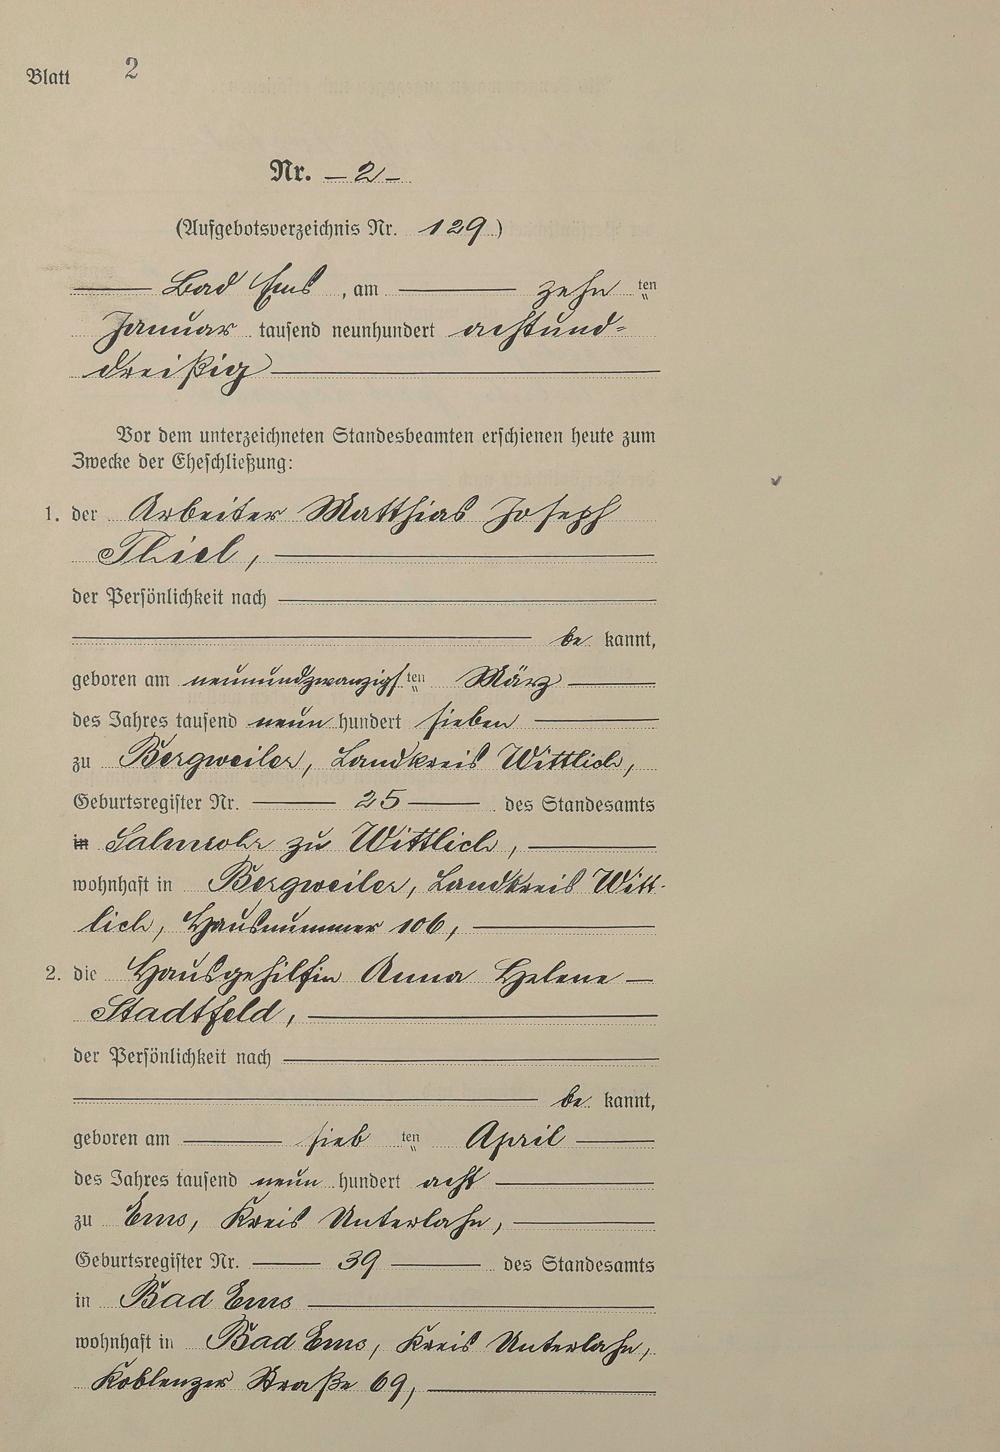 Blatt 2
Nr. – 2 –
(Aufgebotsverzeichnis Nr. 129)
Bad Ems, am zehn ten
Januar tausend neunhundert achtund-
dreißig
Vor dem unterzeichneten Standesbeamten erschienen heute zum
Zwecke der Eheschließung:
1. der Arbeiter Matthias Joseph
Thiel,
der Persönlichkeit nach
be kannt,
geboren am neunundzwanzigs ten März
des Jahres tausend neun hundert sieben
zu Bergweiler, Landkreis Wittlich,
Geburtsregister Nr. 25 des Standesamts
in Salmrohr zu Wittlich,
wohnhaft in Bergweiler, Landkreis Witt-
lich, Hausnummer 106,
2. die Hausgehilfin Anna Helene
Stadtfeld,
der Persönlichkeit nach
be kannt,
geboren am sieb ten April
des Jahres tausend neun hundert acht
zu Ems, Kreis Unterlahn,
Geburtsregister Nr. 39 des Standesamts
in Bad Ems
wohnhaft in Bad Ems, Kreis Unterlahn,
Koblenzer Straße 69,